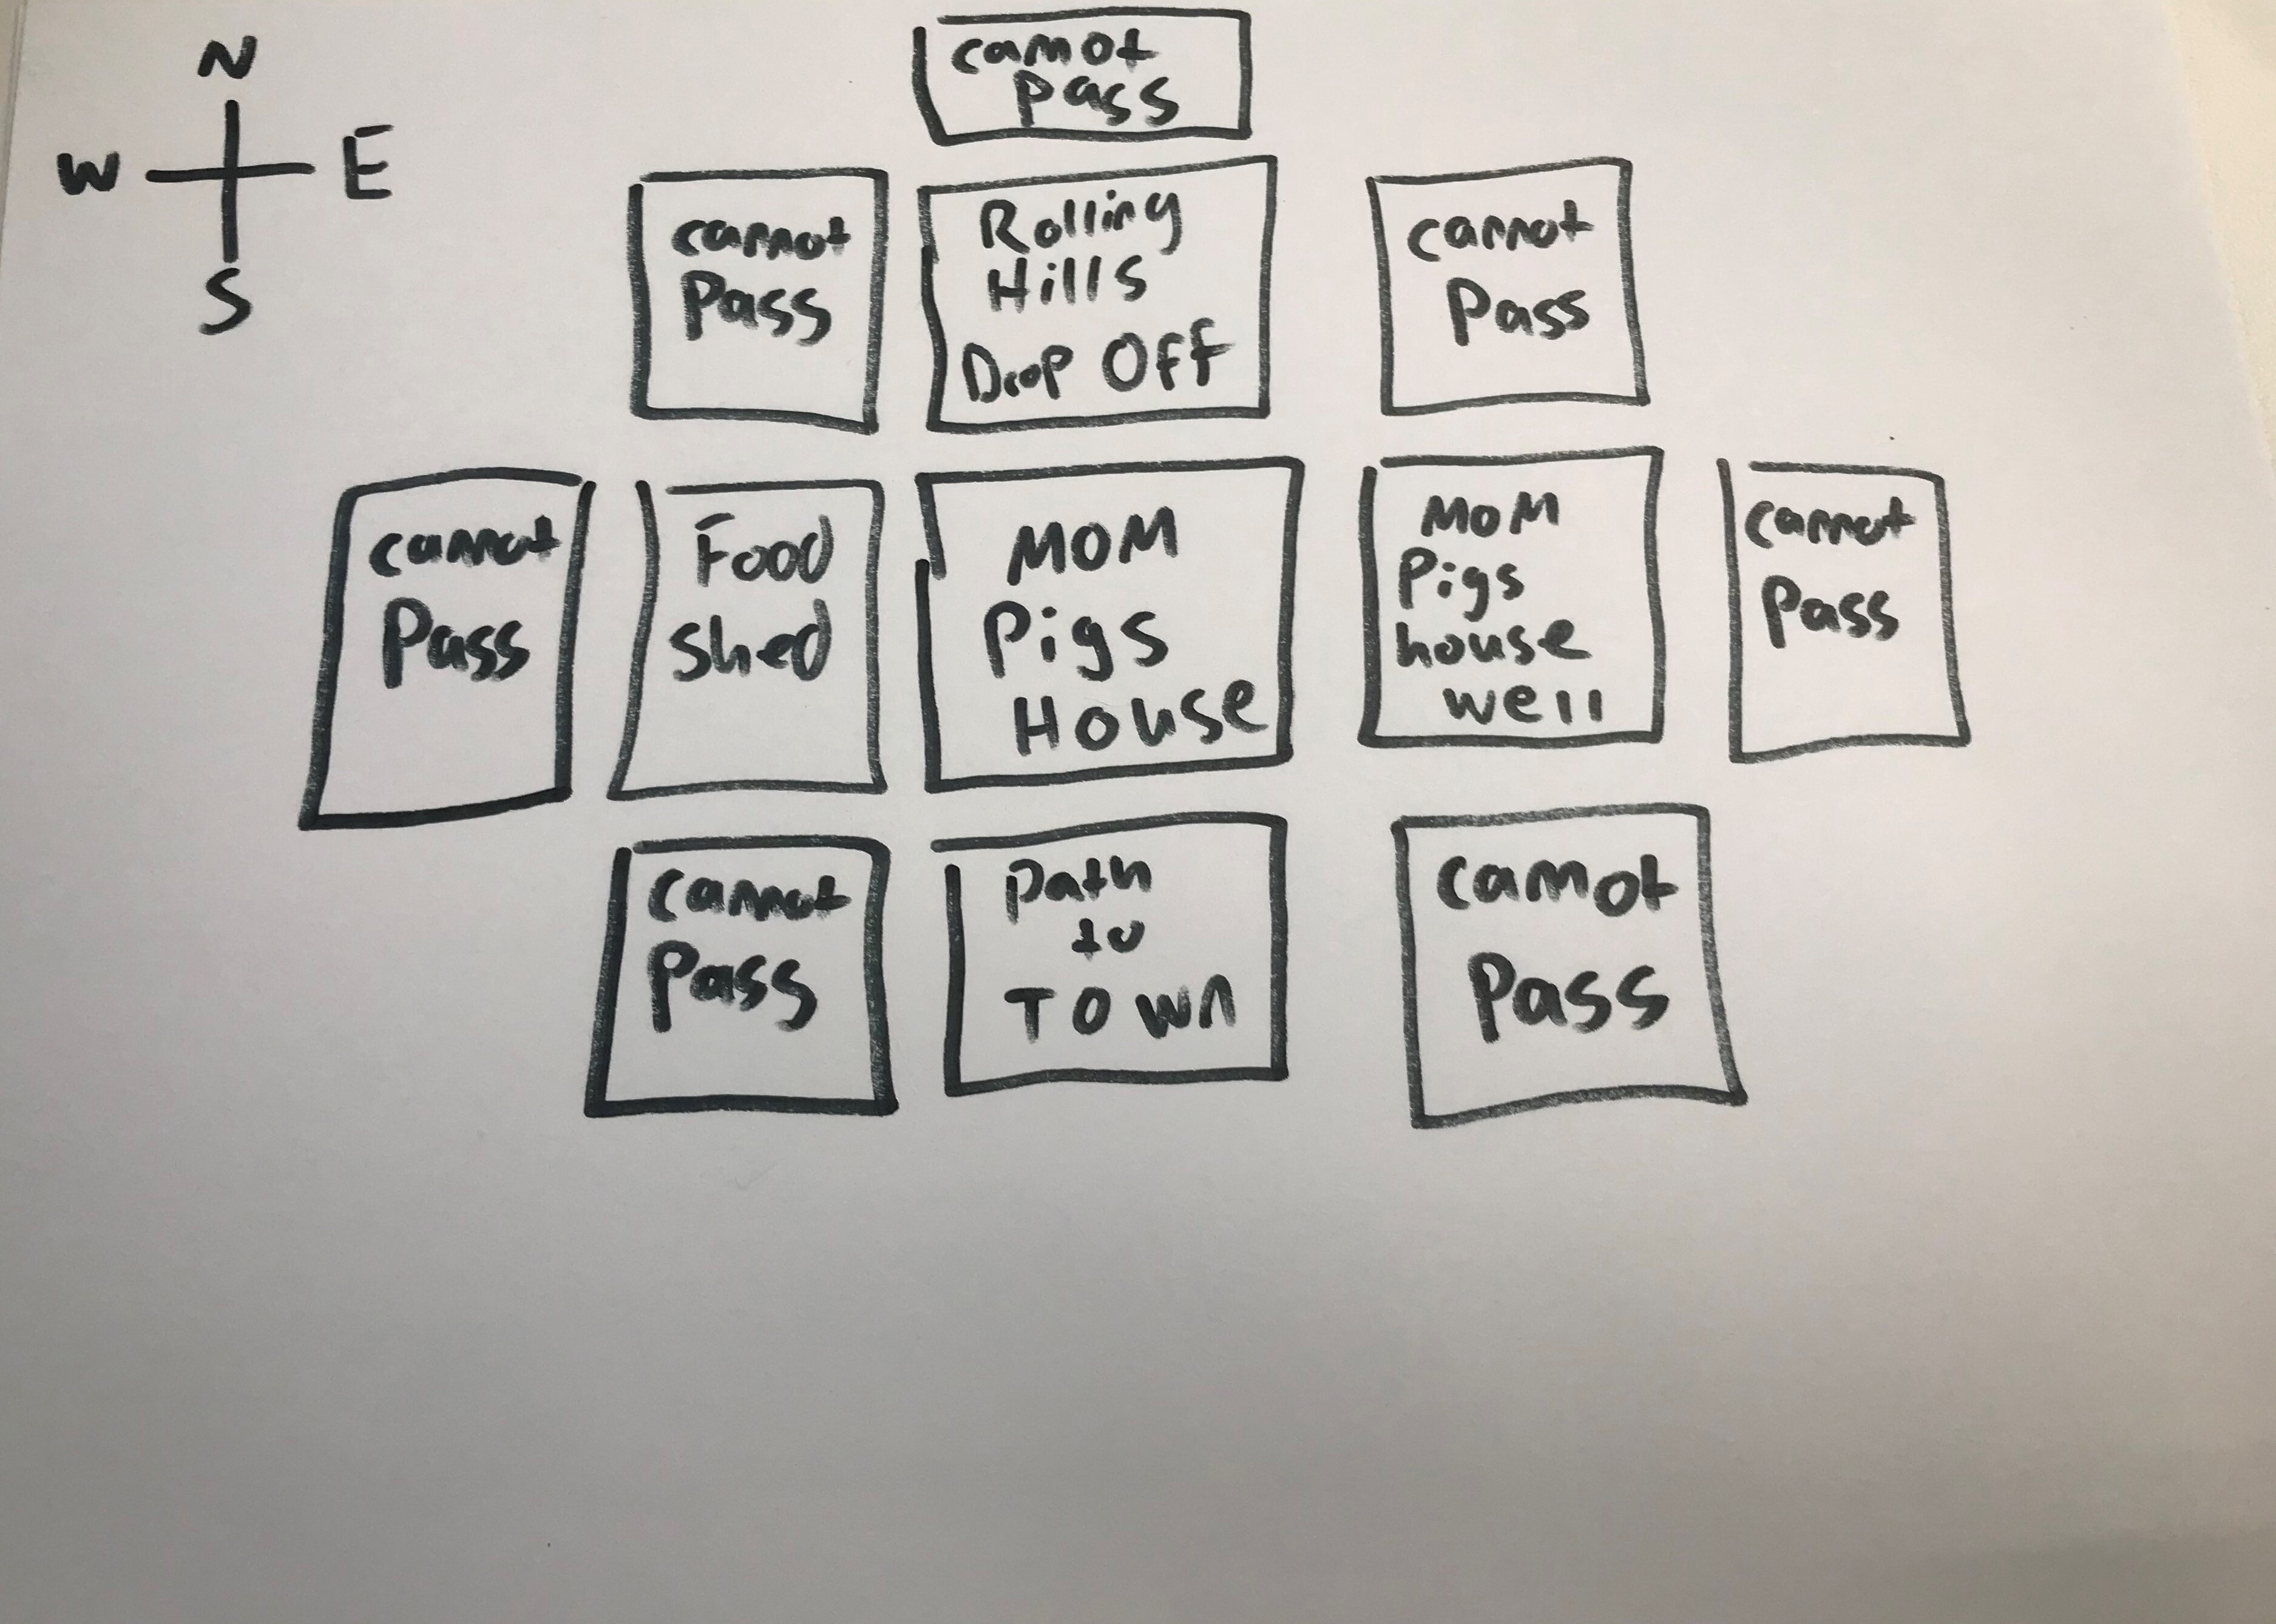 N
W E
S
cannot
pass
cannot
Pass
Rolling
Hills
Drop Off
cannot
Pass
cannot
Pass
Food
shed
MOM
Pigs
House
MOM
Pigs
house
well
cannot
Pass
cannot
Pass
Path
to
TOWN
cannot
Pass